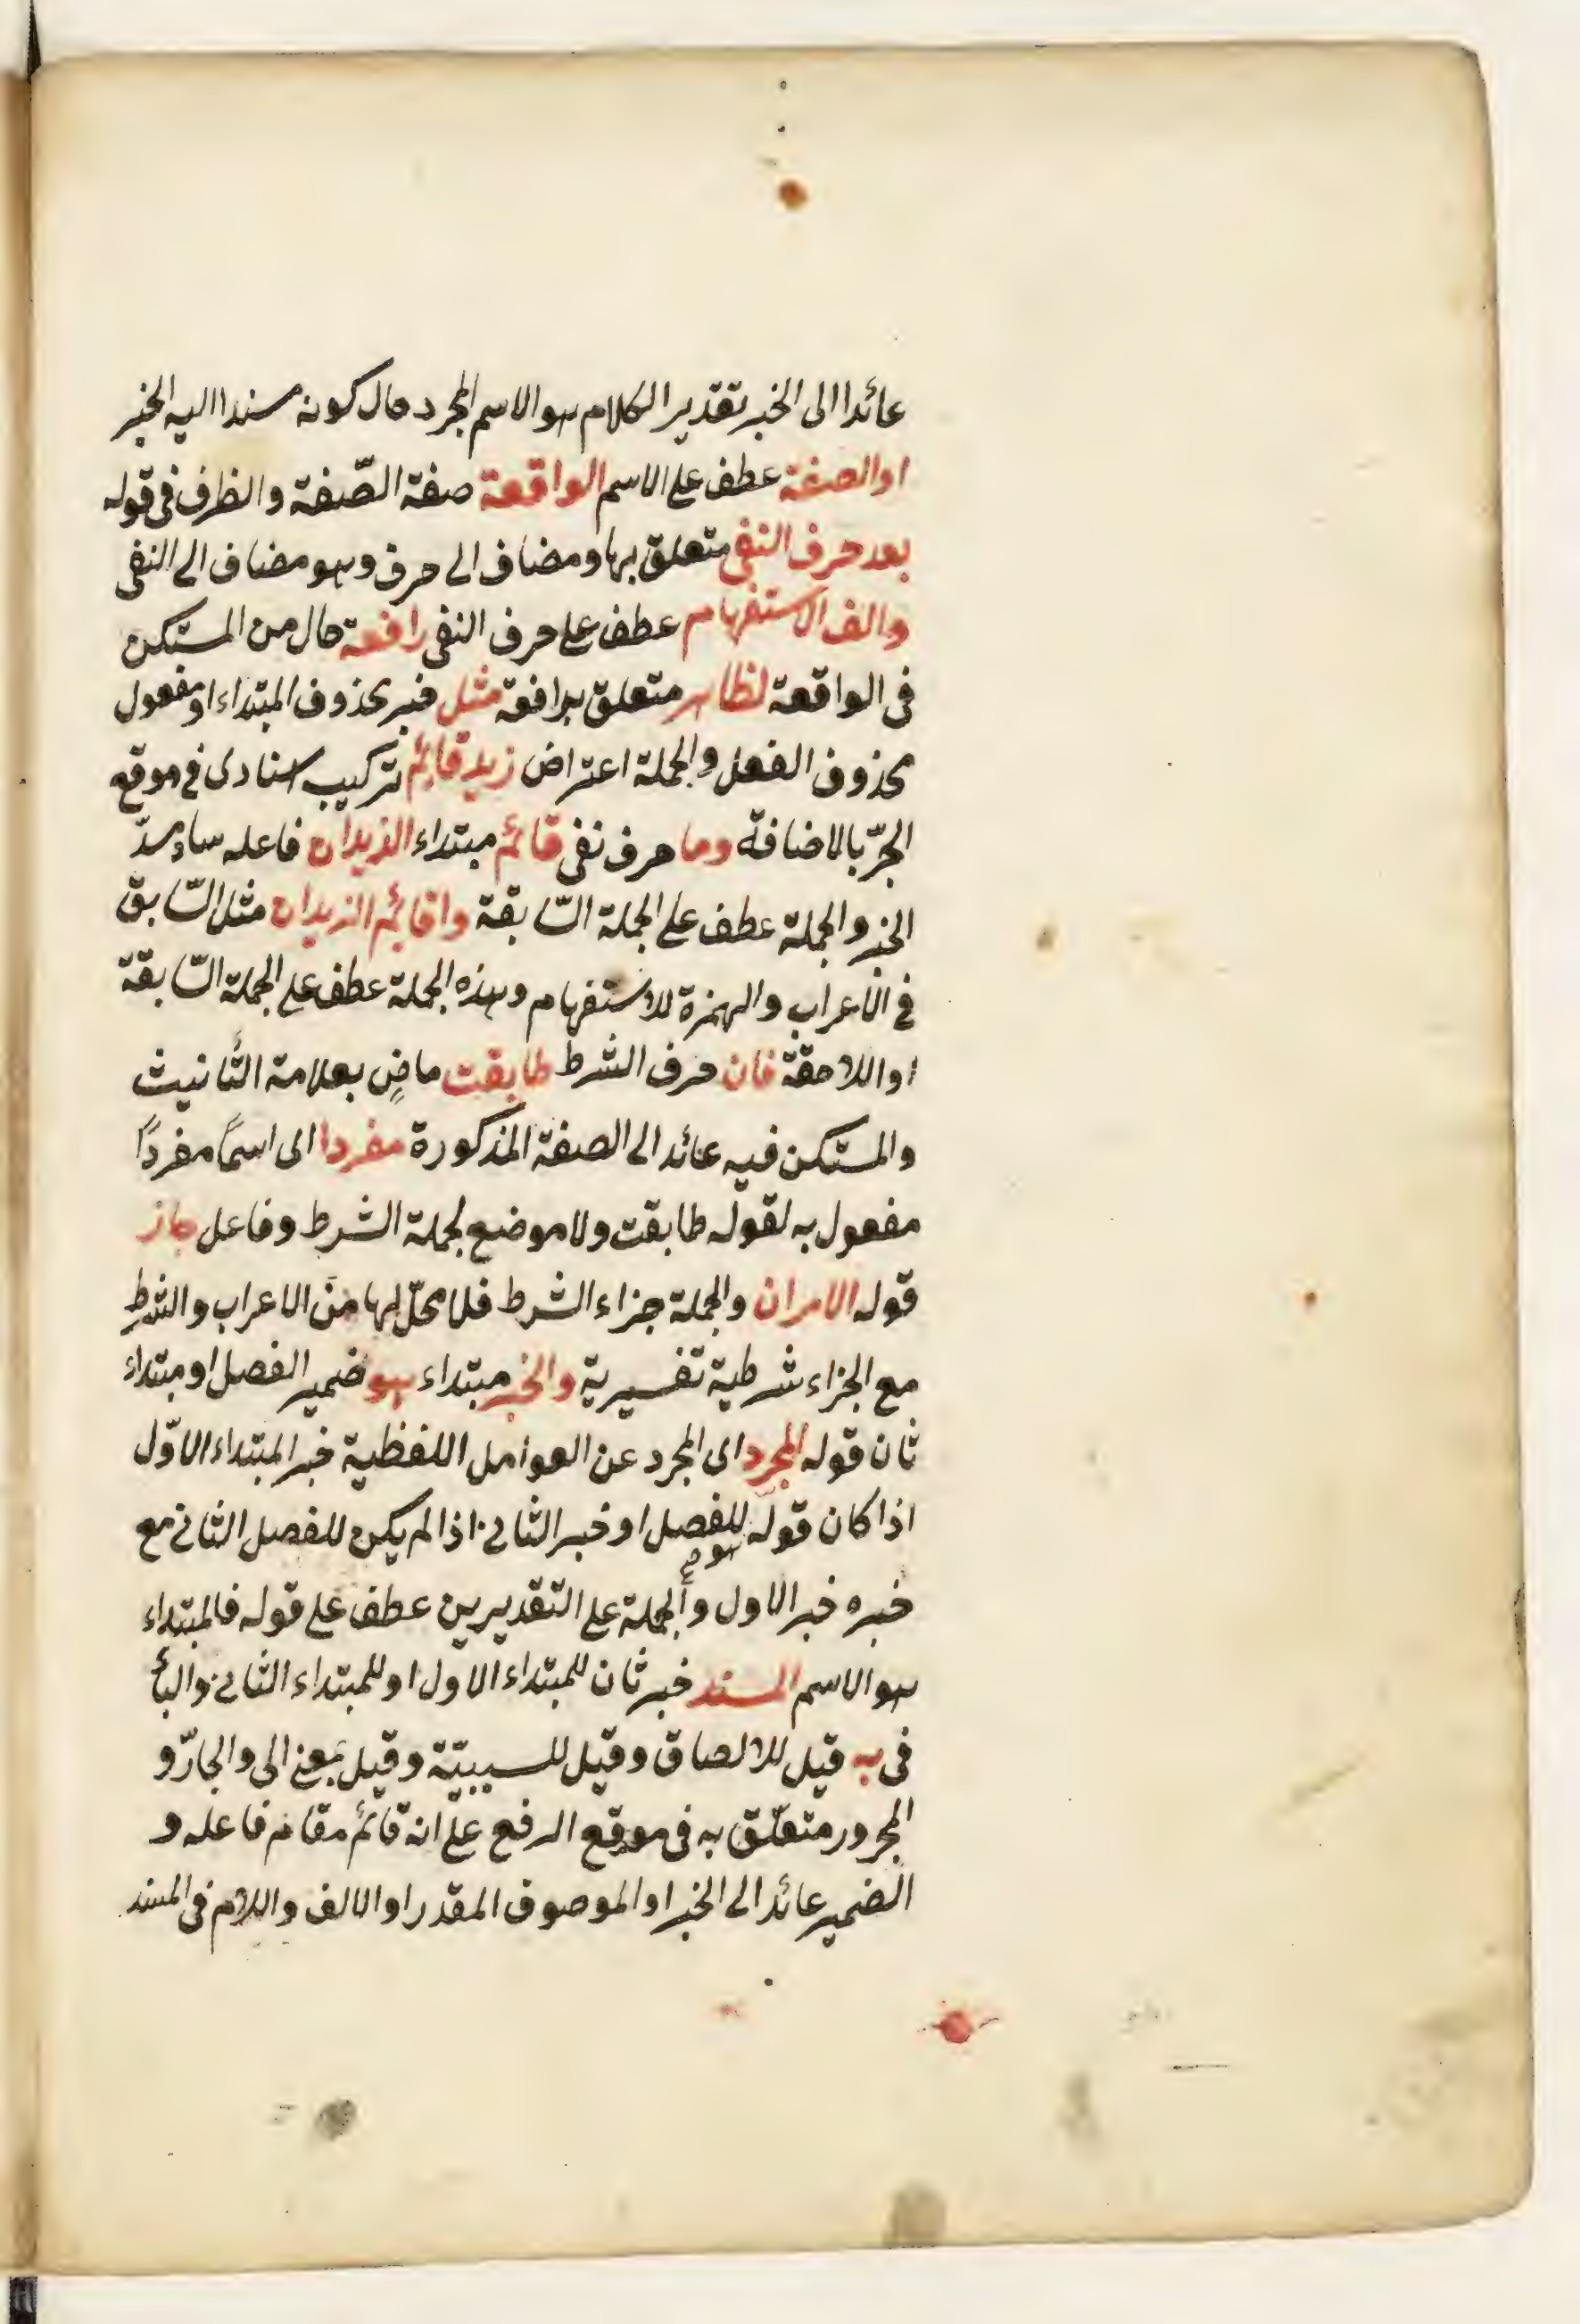 عائدا الى الخبر تقدير الكلام هو الاسم المجرد حال كونه مسندا اليه الخبر
او الصفة عطف على الاسم الواقعة صفة الصّفة والظرف فى قوله
بعد حرف النفى متعلق بها ومضاف الى حرف وهو مضاف الى النفى
والف الاستفهام عطف على حرف النفى رافعة حال من المستكن
فى الواقعة لظاهر متعلق برافعة مثل خبر محذوف المبتداء او مفعول
محذوف الفعل والجملة اعتراض زيد قائم تركيب اسنادى فى موقع
الجرّ بالاضافة وما حرف نفى قائم مبتداء الزيدان فاعله ساد مسدّ
الخبر والجملة عطف على الجملة السّابقة واقائم الزيدان مثل السّابق
فى الاعراب والهمزة للاستفهام وهذه الجملة عطف على الجملة السّابقة
او اللاحقة فان حرف الشرط طابقت ماضٍ بعلامة التّأنيث
والمستكن فيه عائد الى الصفة المذكورة مفردا اى اسمًا مفردًا
مفعول به لقوله طابقت ولا موضع لجملة الشرط وفاعل جاز
قوله الامران والجملة جزاء الشرط فلا محلّ لها من الاعراب والشرط
مع الجزاء شرطية تفسيرية والخبر مبتداء هو ضمير الفصل او مبتداء
ثان قوله المجرد اى المجرد عن العوامل اللفظية خبر المبتداء الاوّل
اذا كان قوله هو للفصل او خبر الثانى اذا لم يكن للفصل الثانى مع
خبره خبر الاول والجملة على التقديرين عطف على قوله فالمبتداء
هو الاسم المسند خبر ثان للمبتداء الاول او للمبتداء الثانى والباء
فى به قيل للالصاق وقيل للسببيّة وقيل بمعنى الى والجارّ و
المجرور متعلّق به فى موقع الرفع على انه قائم مقام فاعله و
الضمير عائد الى الخبر او الموصوف المقدر او الالف واللام فى المسند